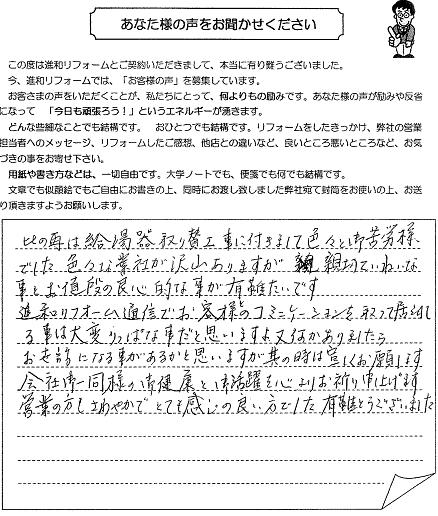 あなた様の声をお聞かせください
この度は進和リフォームとご契約いただきまして、本当に有り難うございました。
今、進和リフォームでは、「お客様の声」を募集しています。
お客さまの声をいただくことが、私たちにとって、何よりもの励みです。あなた様の声が励みや反省
になって　「今日も頑張ろう！」というエネルギーが湧きます。
どんな些細なことでも結構です。　おひとつでも結構です。リフォームをしたきっかけ、弊社の営業
担当者へのメッセージ、リフォームしたご感想、他店との違いなど、良いところ悪いところなど、お気
づきの事をお寄せ下さい。
用紙や書き方などは、一切自由です。大学ノートでも、便箋でも何でも結構です。
文章でも似顔絵でもご自由にお書きの上、同時にお渡し致しました弊社宛て封筒をお使いの上、お送
り頂きますようお願いします。
此の再は給湯器取り替工事に付きまして色々と御苦労様
でした 色々な業社が沢山ありますが 親切ていねいな
事とお値段の良心的な事が有難たいです
進和リフォーム通信でお客様とのコミニケーションを取って居られ
る事は大変りっぱな事だと思いますよ又何かありましたら
お世話になる事があるかと思いますが其の時は宜しくお願します
会社御一同様の御健康と御活躍を心よりお祈り申上げます
営業の方もさわやかで とても感じの良い方でした 有難とうございました